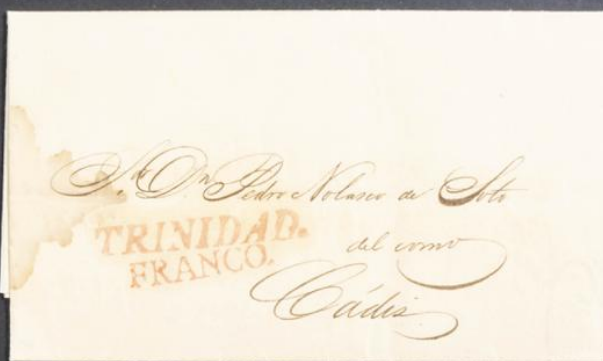 Sr. Dn. Pedro Nolasco de Soto
TRINIDAD.
FRANCO.
del comº
Cádiz